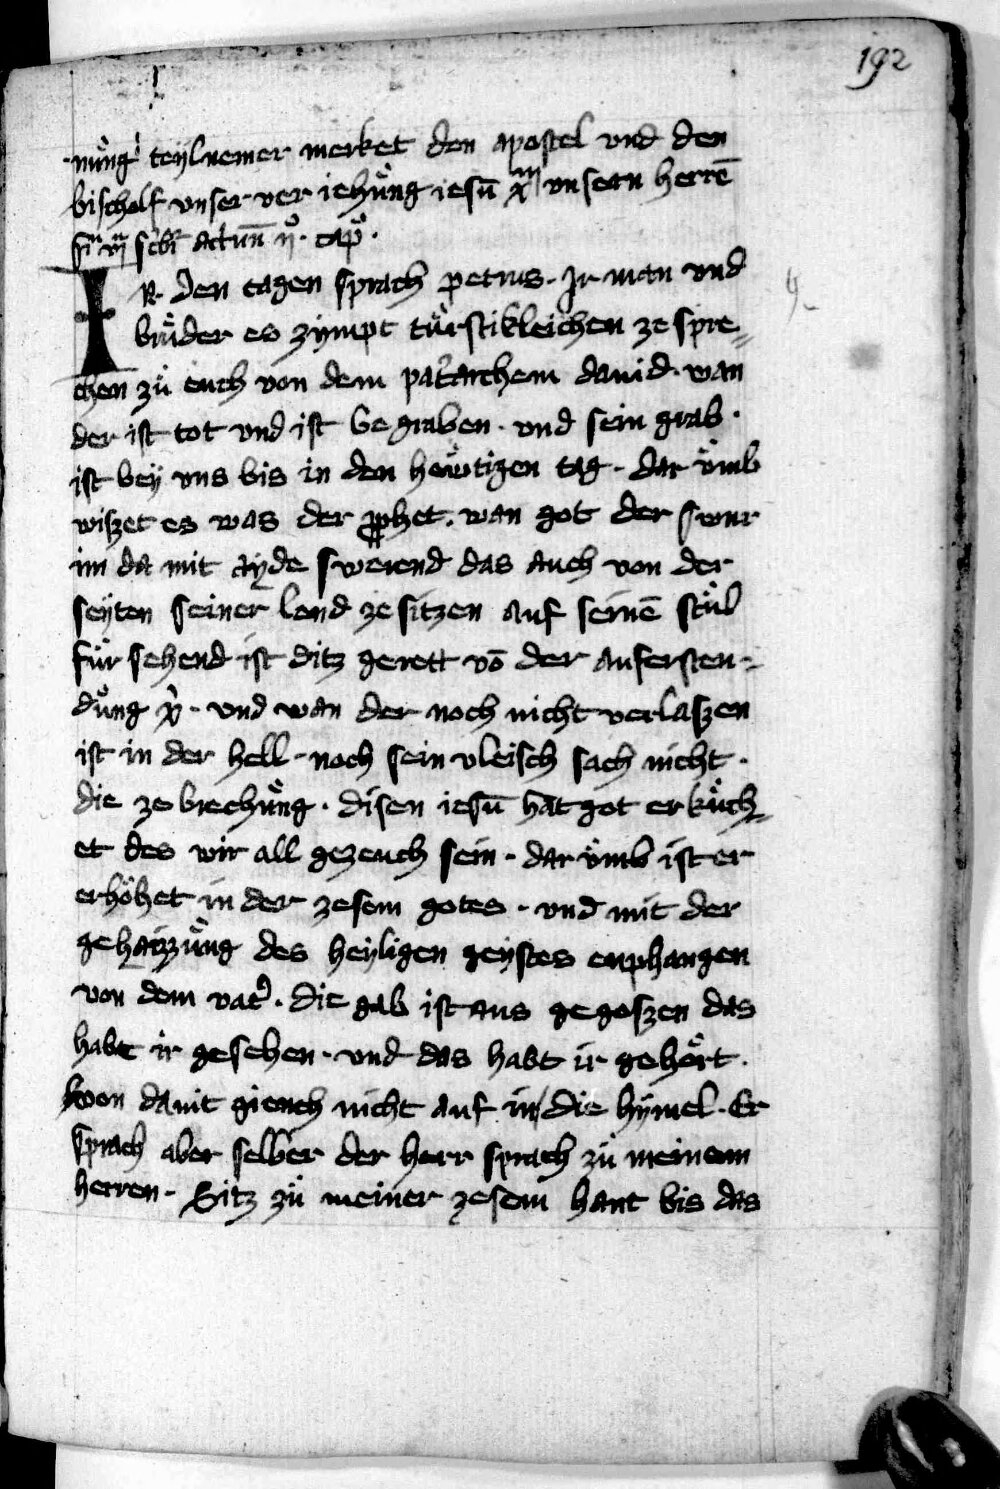 192
nuͦng' teylnemer merket den apostel vnd den
bischolf vnser ver iehuͦng iesū xm vnsern herrē
actuū ij° cap°.
IN den tagen sprach petrus. Ir man vnd
bruͤder es zympt tuͤrstikleichen ze spre„
chen zuͦ euch von dem pat'archem dauid. wan
der ist tot vnd ist begraben. vnd sein grab.
ist bey vns bis in den hewtigen tag. dar vmb
wiszet es was der ꝓphet. wan got der swur
im da mit ayde swerend das auch von der
seyten seiner lend ze sitzen auf seinē stuͦl
fuͤr sehend ist ditz gerett vō der aufersten„
duͦng x̄. vnd wan der noch nicht verlaszen
ist in der hell. noch sein vleisch sach nicht.
die ze brechuͦng. disen iesū hat got erkuͤch„
et des wir all gezeuch sein. dar vmb ist er
erhoͤhet in der zesem gotes. vnd mit der
gehaizzuͦng des heyligen geystes enphangen
von dem vat'. die gab ist aus gegoszen das
habt ir gesehen. vnd das habt ir gehoͤrt.
won dauit giench nicht auf in die hymel. Er
sprach aber selber der herr sprach zuͦ meinem
herren. Sitz zuͦ meiner zesem hant bis das